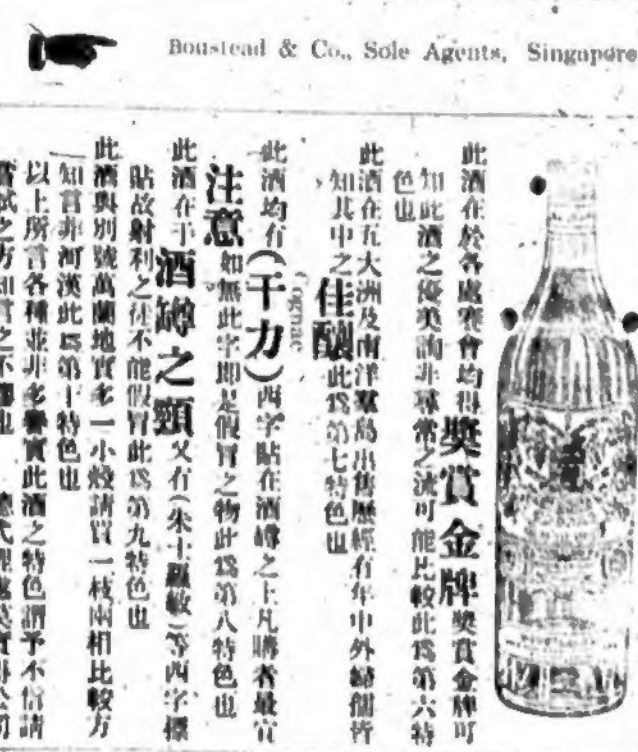 Boustead & Co., Sole Agents, Singapore
此酒在於各處賽會均得獎賞金牌獎賞金牌可
知此酒之優美洵非尋常之流可能比較此爲第六特
色也
此酒在五大洲及南洋羣島出售歷經有年中外婦孺皆
知其中之佳釀此爲第七特色也
此酒均有(干力)Cognac西字貼在酒罇之上凡購者最宜
注意如無此字即是假冒之物此爲第八特色也
此酒在于酒罇之頸又有(朱士羅敏)等西字標
貼故射利之徒不能假冒此爲第九特色也
此酒與別號萬蘭地實多一小燉請買一枝兩相比較方
知言非河漢此爲第十特色也
以上所言各種並非多譽實此酒之特色謂予不信請
嘗試之方知言之不謬也